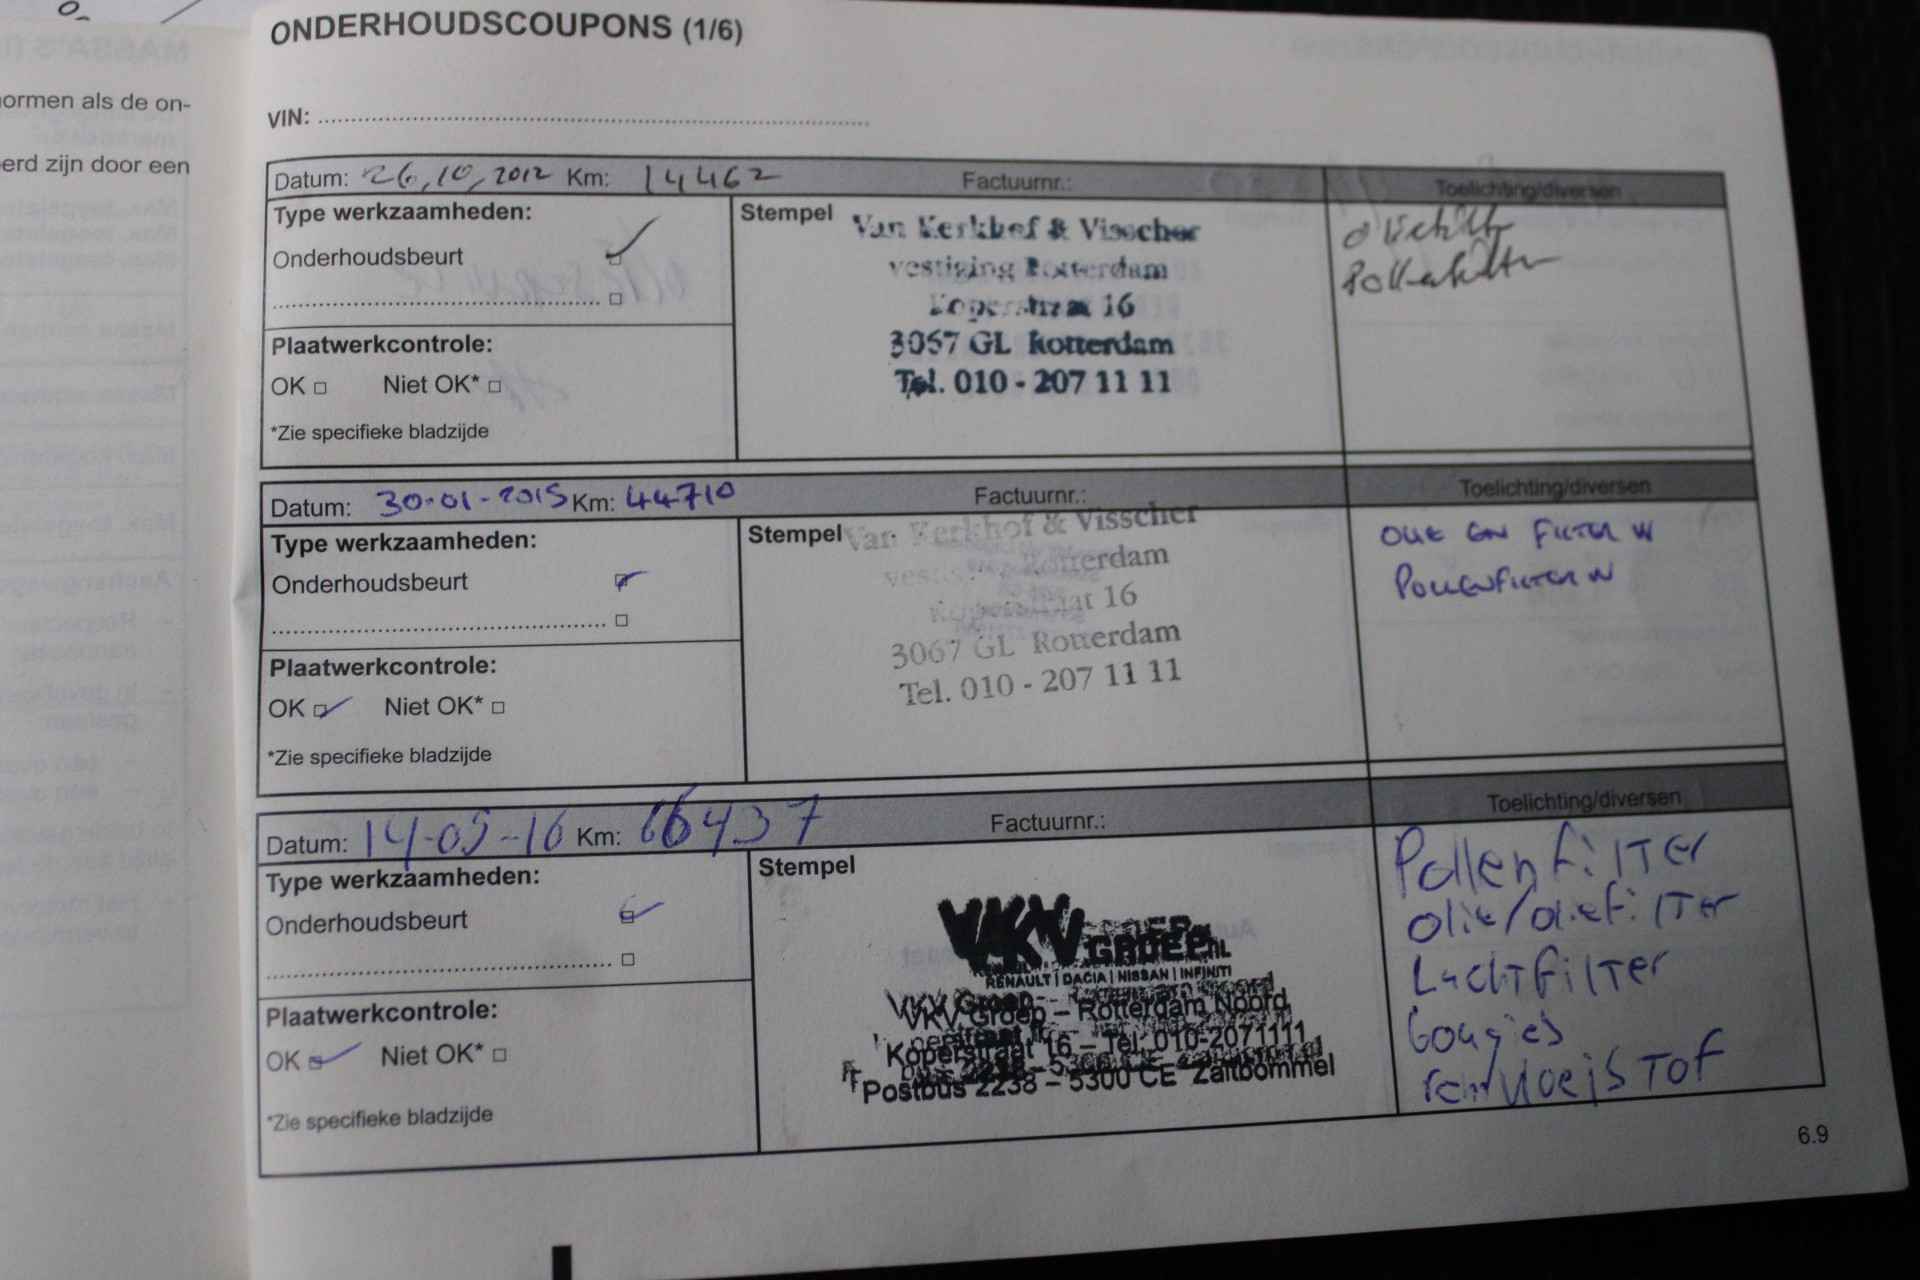 ormen als de on-
erd zijn door een
ONDERHOUDSCOUPONS (1/6)
VIN:
Datum: 26,10,2012 Km: 14462 Factuurnr.: Toelichting/diversen
Type werkzaamheden:
Stempel
Onderhoudsbeurt
Van Kerkhof & Visscher
vestiging Rotterdam
Koperstraat 16
3067 GL Rotterdam
Tel. 010 - 207 11 11
Pollenfilter
Plaatwerkcontrole:
OK Niet OK*
*Zie specifieke bladzijde
Datum: 30-01-2015 Km: 44710 Factuurnr.: Toelichting/diversen
Type werkzaamheden:
Stempel
Onderhoudsbeurt
Van Kerkhof & Visscher
Rotterdam
16
3067 GL Rotterdam
Tel. 010 - 207 11 11
OLIE EN FILTER W
POLLENFILTER W
Plaatwerkcontrole:
OK Niet OK*
*Zie specifieke bladzijde
Datum: 14-05-16 Km: 66437 Factuurnr.: Toelichting/diversen
Type werkzaamheden:
Stempel
Onderhoudsbeurt
VKV GROEP.NL
RENAULT | DACIA | NISSAN | INFINITI
VKV Groep – Rotterdam Noord
Koperstraat 16 – Tel: 010-2071111
Postbus 2238 – 5300 CE Zaltbommel
Pollenfilter
olie/oliefilter
Luchtfilter
Bougies
remvloeistof
Plaatwerkcontrole:
OK Niet OK*
*Zie specifieke bladzijde
6.9